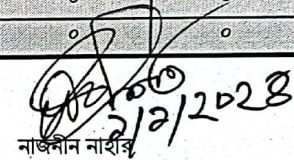 ০ ০
২/২/২০২৪
নাজনীন নাহীদ